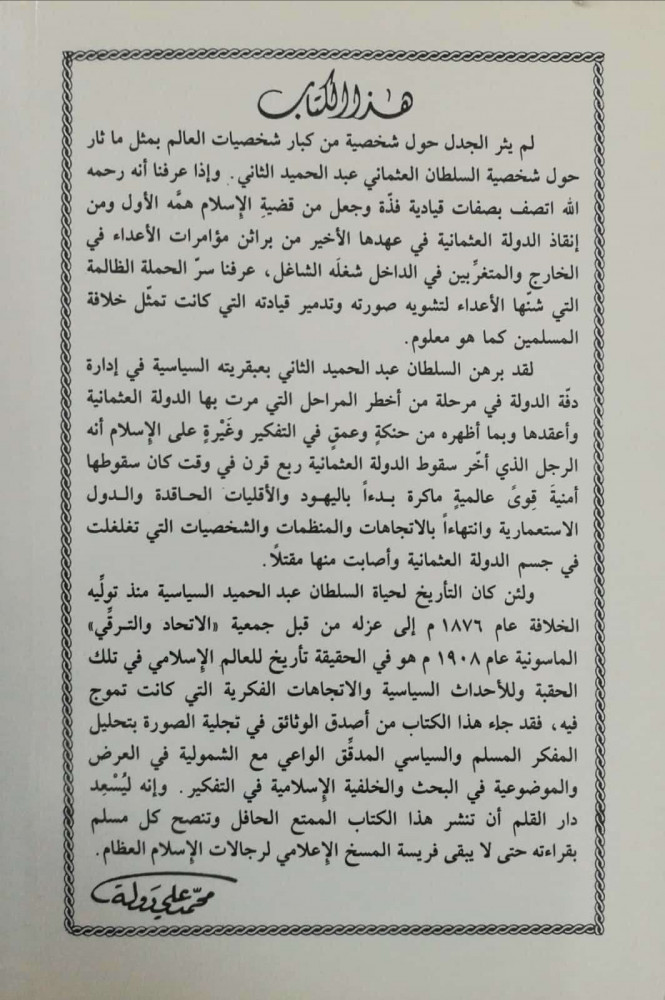 هذا الكتاب
لم يثر الجدل حول شخصية من كبار شخصيات العالم بمثل ما ثار
حول شخصية السلطان العثماني عبد الحميد الثاني. وإذا عرفنا أنه رحمه
الله اتصف بصفات قيادية فذّة وجعل من قضيةِ الإسلام همَّه الأول ومن
إنقاذ الدولة العثمانية في عهدها الأخير من براثن مؤامرات الأعداء في
الخارج والمتغرِّبين في الداخل شغلَه الشاغل، عرفنا سرّ الحملة الظالمة
التي شنّها الأعداء لتشويه صورته وتدمير قيادته التي كانت تمثّل خلافة
المسلمين كما هو معلوم.
لقد برهن السلطان عبد الحميد الثاني بعبقريته السياسية في إدارة
دفّة الدولة في مرحلة من أخطر المراحل التي مرت بها الدولة العثمانية
وأعقدها وبما أظهره من حنكةٍ وعمقٍ في التفكير وغَيْرةٍ على الإسلام أنه
الرجل الذي أخّر سقوط الدولة العثمانية ربع قرن في وقت كان سقوطها
أمنيةَ قوىً عالميةٍ ماكرة بدءاً باليهود والأقليات الحاقدة والدول
الاستعمارية وانتهاءاً بالاتجاهات والمنظمات والشخصيات التي تغلغلت
في جسم الدولة العثمانية وأصابت منها مقتلاً.
ولئن كان التأريخ لحياة السلطان عبد الحميد السياسية منذ تولِّيه
الخلافة عام ١٨٧٦ م إلى عزله من قبل جمعية «الاتحاد والترقِّي»
الماسونية عام ١٩٠٨ م هو في الحقيقة تأريخ للعالم الإسلامي في تلك
الحقبة وللأحداث السياسية والاتجاهات الفكرية التي كانت تموج
فيه، فقد جاء هذا الكتاب من أصدق الوثائق في تجلية الصورة بتحليل
المفكر المسلم والسياسي المدقّق الواعي مع الشمولية في العرض
والموضوعية في البحث والخلفية الإسلامية في التفكير. وإنه ليُسْعِد
دار القلم أن تنشر هذا الكتاب الممتع الحافل وتنصح كل مسلم
بقراءته حتى لا يبقى فريسة المسخ الإعلامي لرجالات الإسلام العظام.
محمد علي دولة